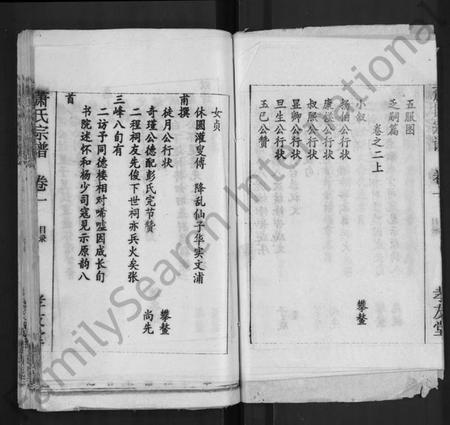 五服图
芝嗣篇
卷之二上
小叙
杨伯公行状
康谣公行状
叔熙公行状
星卿公行状
旦生公行状
玉已公赞
攀鳌
孝友堂
女贞
休园灌叟傅 降乱仙子华实文浦
甫撰
徒月公行状 攀鳌
奇瑾公德配彭氏完节赞 尚先
二程祠友先俊下世祠亦兵火矣张
三峰八旬有
二访予同德楼相对唏嘘因成长句
书院述怀和杨少司寇见示原韵八
首
萧氏宗谱
卷一
目录
孝友堂
FamilySearch International